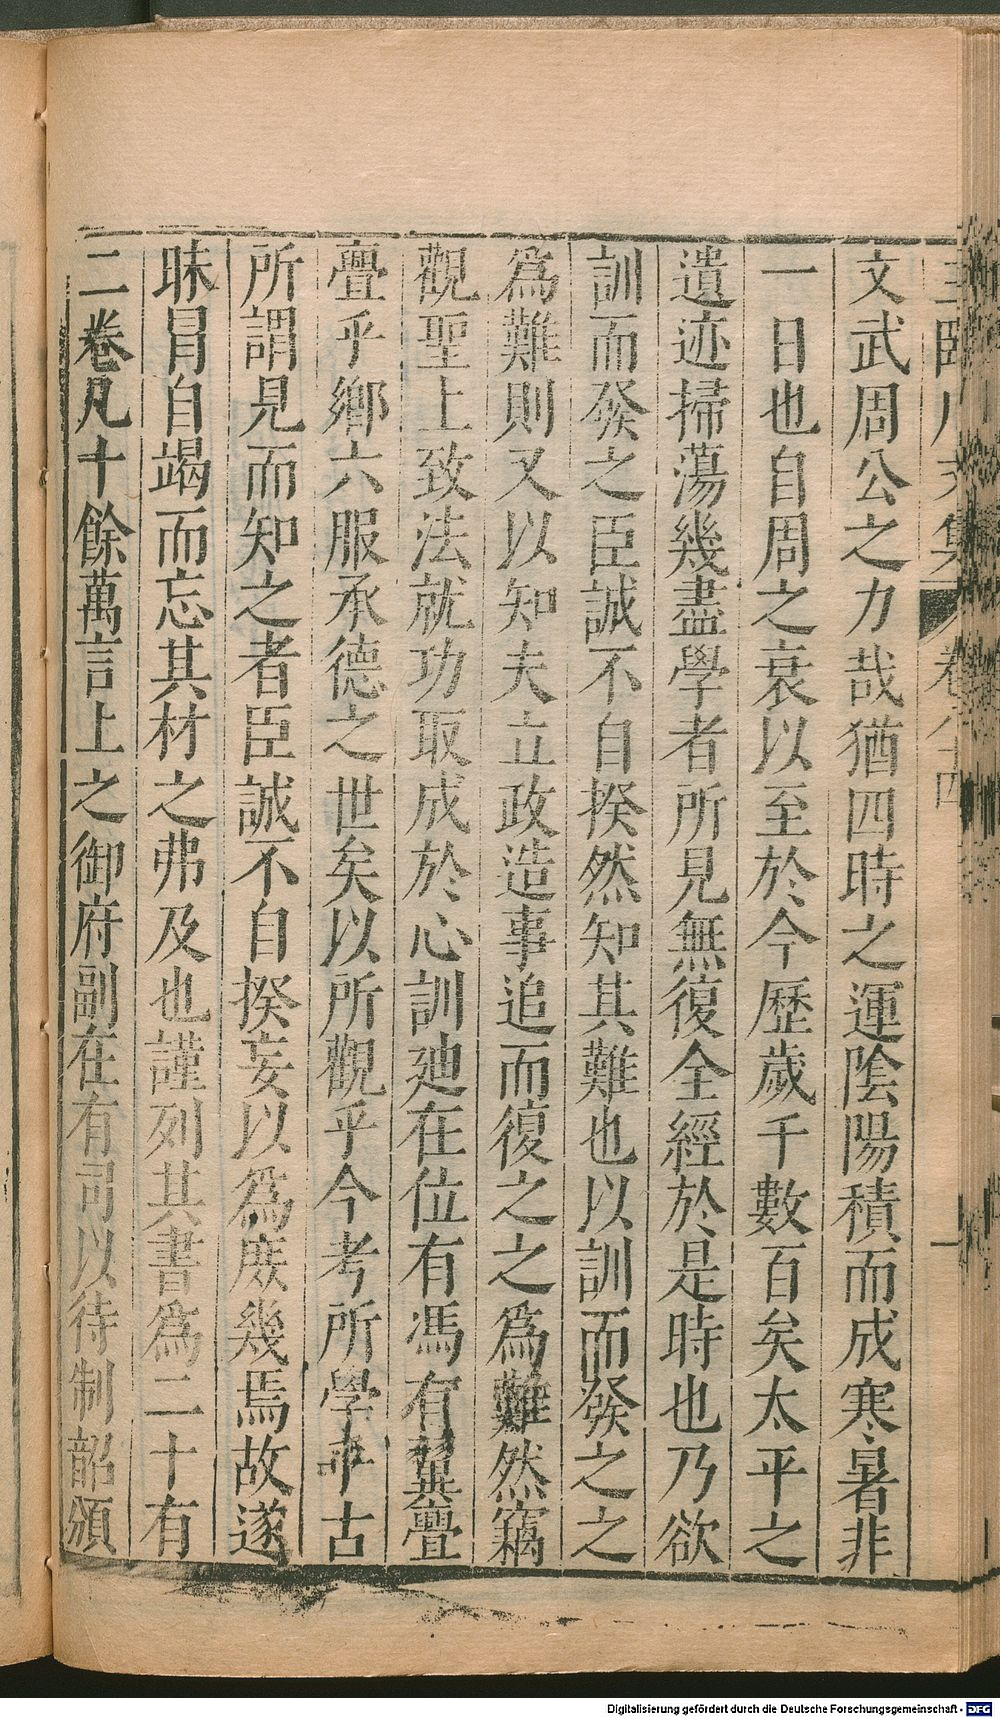 文武周公之力哉猶四時之運陰陽積而成寒暑非
一日也自周之衰以至於今歷歲千數百矣太平之
遺迹掃蕩幾盡學者所見無復全經於是時也乃欲
訓而發之臣誠不自揆然知其難也以訓而發之之
為難則又以知夫立政造事追而復之之為難然竊
觀聖上致法就功取成於心訓迪在位有馮有翼亹
亹乎鄉六服承德之世矣以所觀乎今考所學乎古
所謂見而知之者臣誠不自揆妄以為庶幾焉故遂
昧冒自竭而忘其材之弗及也謹列其書為二十有
二卷凡十餘萬言上之御府副在有司以待制詔頒
Digitalisierung gefördert durch die Deutsche Forschungsgemeinschaft - DFG